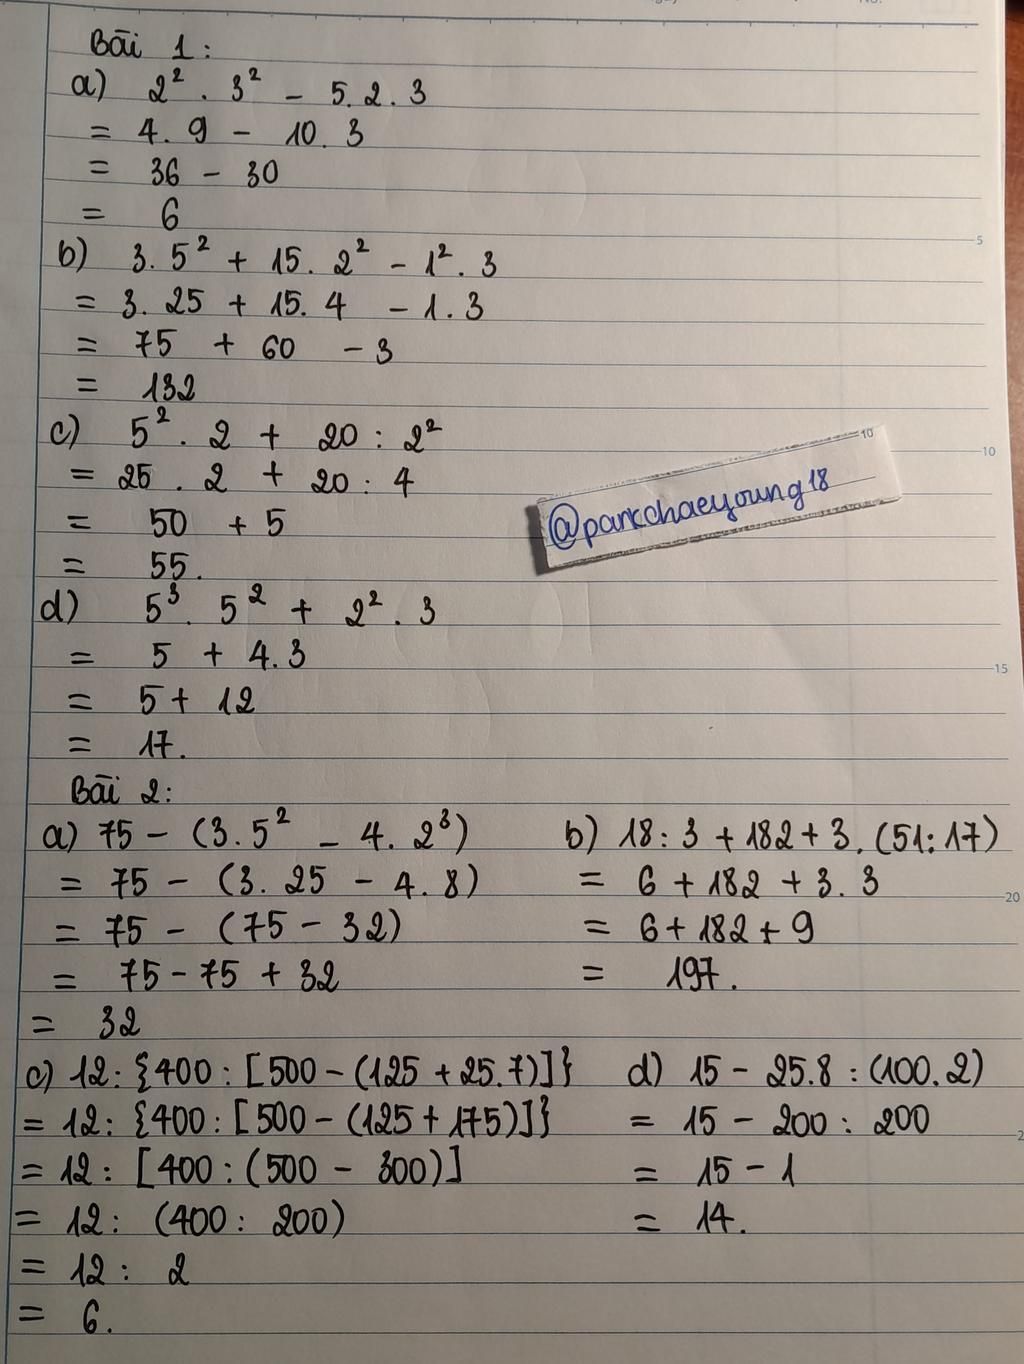 Bài 1:
a) 2² . 3² - 5.2.3
= 4.9 - 10.3
= 36 - 30
= 6
b) 3.5² + 15.2² - 1².3
= 3.25 + 15.4 - 1.3
= 75 + 60 - 3
= 132
c) 5² . 2 + 20 : 2²
= 25 . 2 + 20 : 4
= 50 + 5
= 55.
d) 5³ . 5² + 2² . 3
= 5 + 4.3
= 5 + 12
= 17.
@parkchaeyoung18
Bài 2:
a) 75 - (3.5² - 4.2³)
= 75 - (3.25 - 4.8)
= 75 - (75 - 32)
= 75 - 75 + 32
= 32
b) 18 : 3 + 182 + 3.(51:17)
= 6 + 182 + 3.3
= 6 + 182 + 9
= 197.
c) 12: {400 : [500 - (125 + 25.7)]}
= 12: {400 : [500 - (125 + 175)]}
= 12: [400 : (500 - 300)]
= 12: (400 : 200)
= 12 : 2
= 6.
d) 15 - 25.8 : (100.2)
= 15 - 200 : 200
= 15 - 1
= 14.
5
10
10
15
20
2